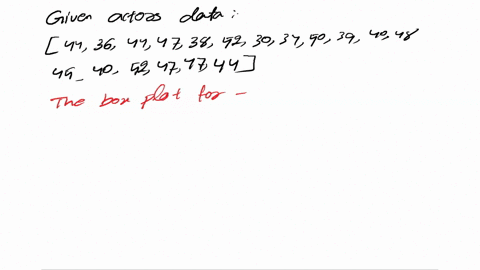 Given actors data:
[44, 36, 44, 47, 38, 52, 30, 34, 50, 39, 40, 48
45, 40, 52, 47, 47, 44]
The box plot for -